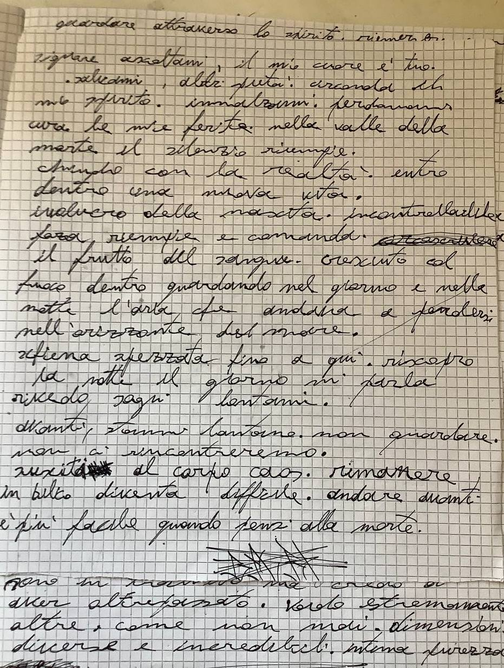 guardare attraverso lo spirito.
signore ascoltami, il mio cuore è tuo.
salvami, abbi pietà. accanda il
mio spirito. innalzami. perdonami
cura le mie ferite. nella valle della
morte il silenzio riempie.
chiudo con la realtà. entro
dentro una nuova vita.
involucro della nascita.
forza riempie e comanda.
il frutto del sangue. cresciuto col
fuoco dentro guardando nel giorno e nella
notte l'aria che andava a perdersi
nell'orizzonte del mare.
schiena spezzata fino a qui. riscopro
la notte il giorno mi parla
rivedo sogni lontani.
avanti, stammi lontano. non guardare.
non ci rincontreremo.
al corpo caos. rimanere
in bilico diventa difficile. andare avanti
è più facile quando pensi alla morte.
sono in ma credo di
aver oltrepassato. vedo estremamente
oltre. come non mai. dimensioni
diverse e incredibili. intima purezza